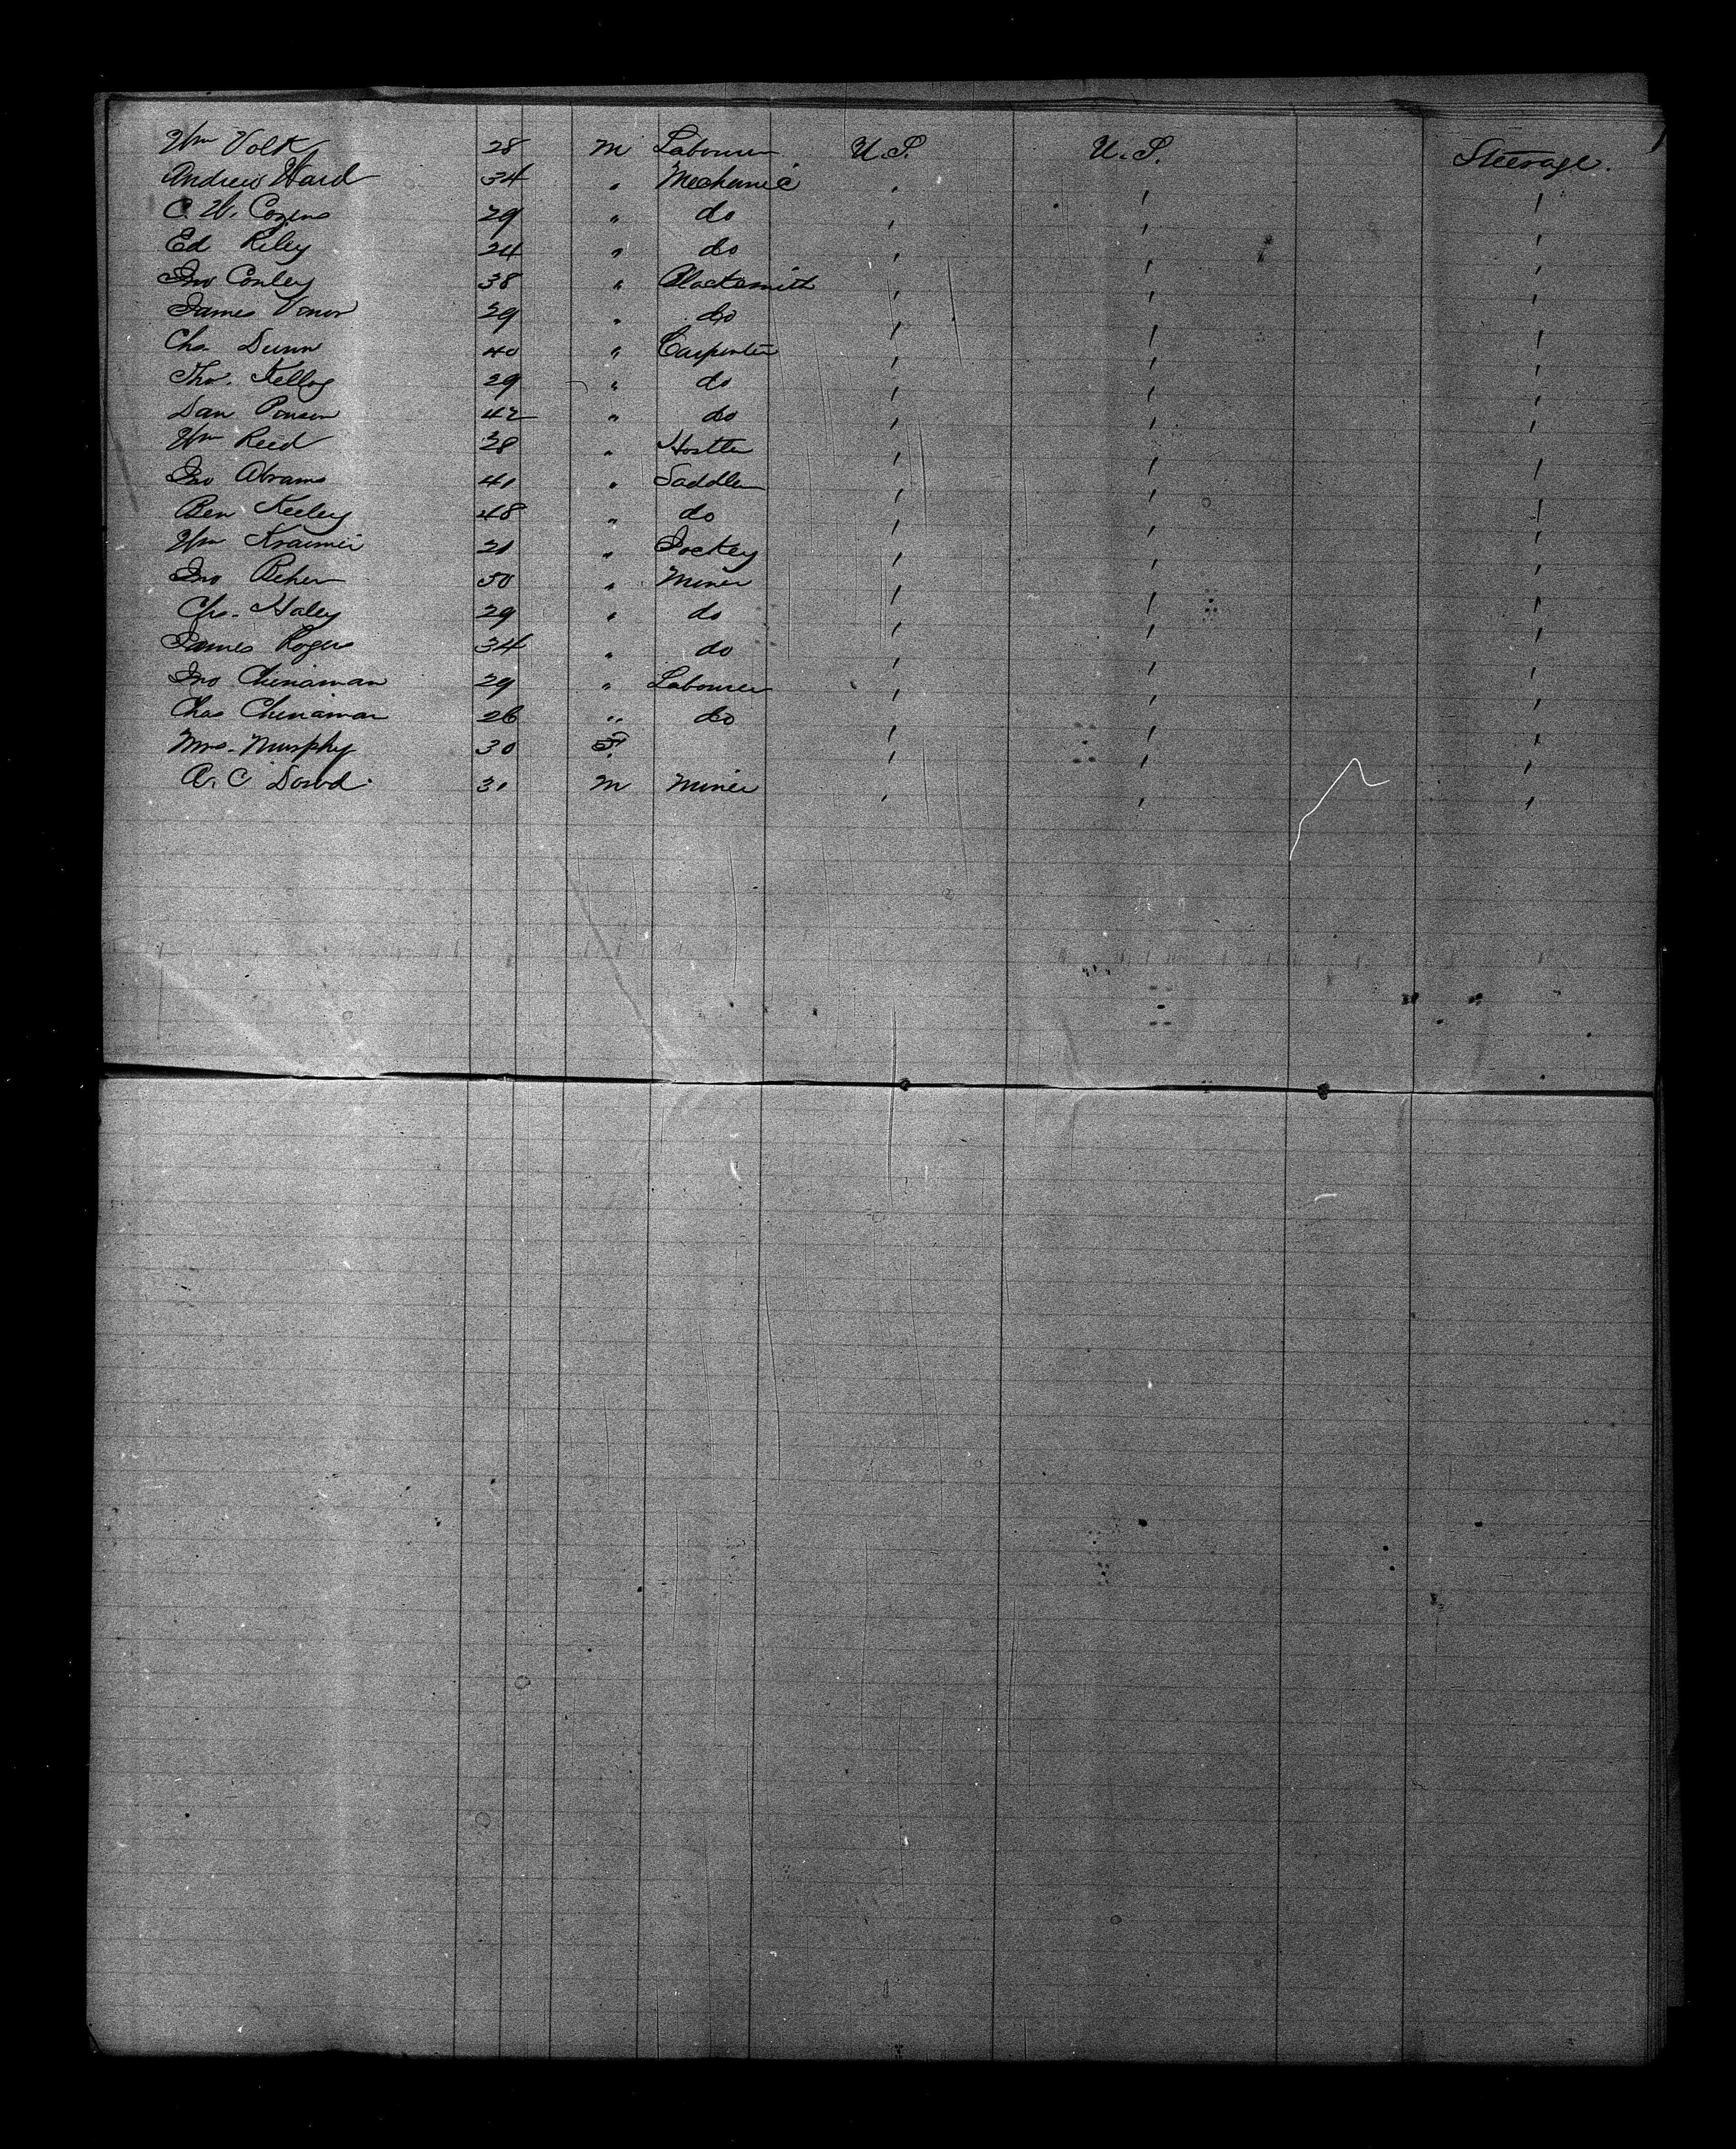 Wm Volk 28 M Labourer U.S. U.S. Steerage.
Andrew Ward 34 " Mechanic " " "
C. W. Cozens 29 " do " " "
Ed Riley 24 " do " " "
Jno Conley 38 " Blacksmith " " "
James 29 " do " " "
Chs. Dunn 40 " Carpenter " " "
Tho. Kellog 29 " do " " "
Dan 42 " do " " "
Wm Reed 38 " Hostler " " "
Jno Abrams 41 " Saddler " " "
Ben Keeley 48 " do " " "
Wm Kraemer 21 " Jockey " " "
Jno 50 " Miner " " "
Chs. Haley 29 " do " " "
James Rogers 34 " do " " "
Jno Chinaman 29 " Labourer " " "
Chas Chinaman 26 " do " " "
Mrs. Murphy 30 F " " "
A. C Dowd 31 M Miner " " "